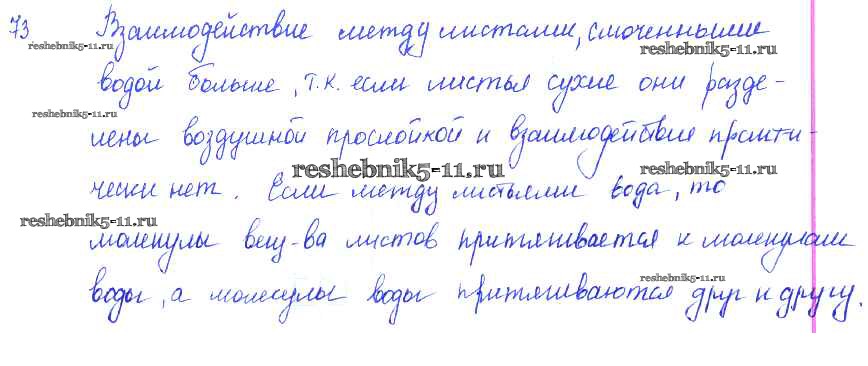 73 Взаимодействие между листами, смоченными
reshebnik5-11.ru reshebnik5-11.ru
водой больше, т.к. если листья сухие они разде-
reshebnik5-11.ru
лены воздушной прослойкой и взаимодействия практи-
reshebnik5-11.ru reshebnik5-11.ru
чески нет. Если между листьями вода, то
reshebnik5-11.ru
молекулы вещ-ва листов притягивается к молекулам
reshebnik5-11.ru
воды, а молекулы воды притягиваются друг к другу.